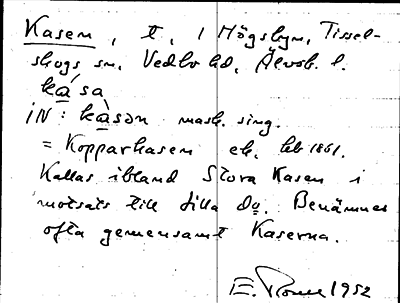 Kasen, t. i Högsbyn, Tissel-
skogs sn. Vedbo hd, Älvsb. l.
ká̱sà
IN: kà̱sən mask. sing.
= Kopparkasen ek. kb 1861.
Kallas ibland Stora Kasen i
motsats till Lilla Do. Benämnes
ofta gemensamt Kaserna.
E. 1952